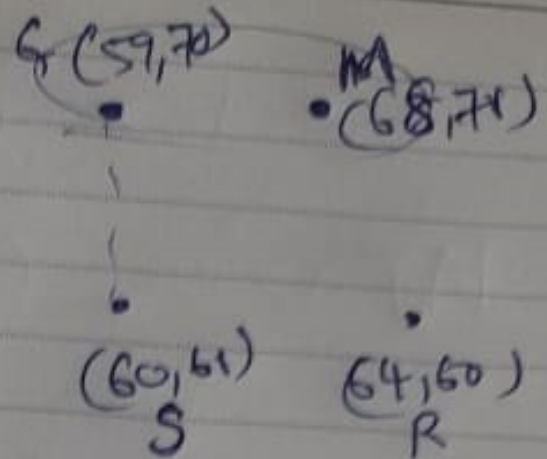 G (59,70)
M
(68,71)
(60,61)
(64,60)
S
R